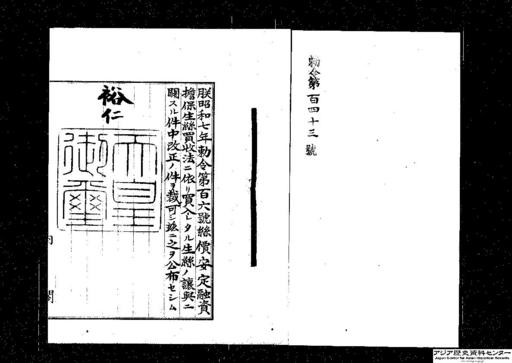 勅令第百四十三號
朕昭和七年勅令第百六號絲價安定融資
擔保生絲買收法ニ依リ買入レタル生絲ノ讓與ニ
關スル件中改正ノ件ヲ裁可シ玆ニ之ヲ公布セシム
裕仁
天皇
御璽
内閣
アジア歴史資料センター
Japan Center for Asian Historical Records